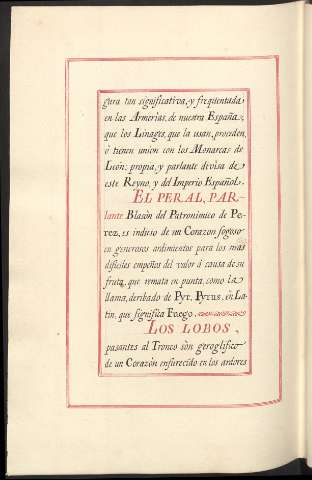 gura tan significativa, y freqüentada
en las Armerías de nuestra España,
que los Linages, que la usan, proceden,
ó tienen union con los Monarcas de
Leon: propia, y parlante devisa de
este Reyno, y del Imperio Español.
EL PERAL, PAR-
lante Blasón del Patronimico de Pe-
rez, es induso de un Corazon fogoso
en generosos ardimientos para los mas
dificiles empeños del valor á causa de su
fruta, que remata en punta, como la
llama, deribado de Pyr, Pyrus, en La-
tin, que significa Fuego.
LOS LOBOS,
pasantes al Tronco son geroglifico
de un Corazón enfurecido en los ardores